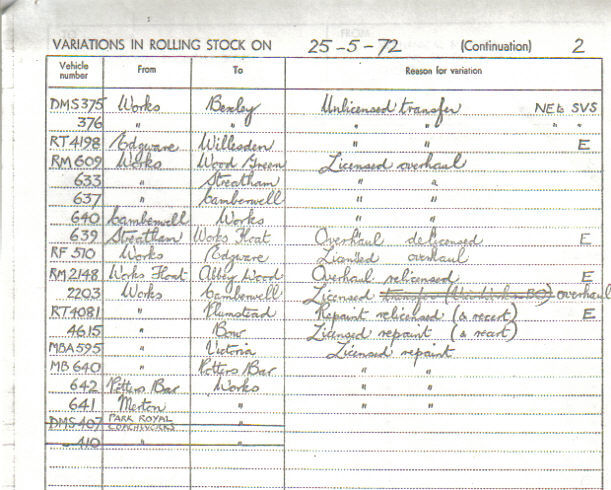 VARIATIONS IN ROLLING STOCK ON 25-5-72 (Continuation) 2
Vehicle number From To Reason for variation
DMS 375 Works Bexley Unlicensed transfer NEL SVS
376 " " " " " "
RT 4198 Edgware Willesden " " E
RM 609 Works Wood Green Licensed overhaul
633 " Streatham " "
637 " Camberwell " "
640 Camberwell Works " "
639 Streatham Works Float Overhaul delicensed E
RF 510 Works Edgware Licensed overhaul
RM 2148 Works Float Abbey Wood Overhaul relicensed E
2203 Works Camberwell Licensed transfer overhaul
RT 4081 " Plumstead Repaint relicensed (& recert) E
4615 " Bow Licensed repaint (& recert)
MBA 595 " Victoria Licensed repaint
MB 640 " Potters Bar " "
642 Potters Bar Works " "
641 Merton " " "
DMS 407 PARK ROYAL COACHWORKS "
410 " "